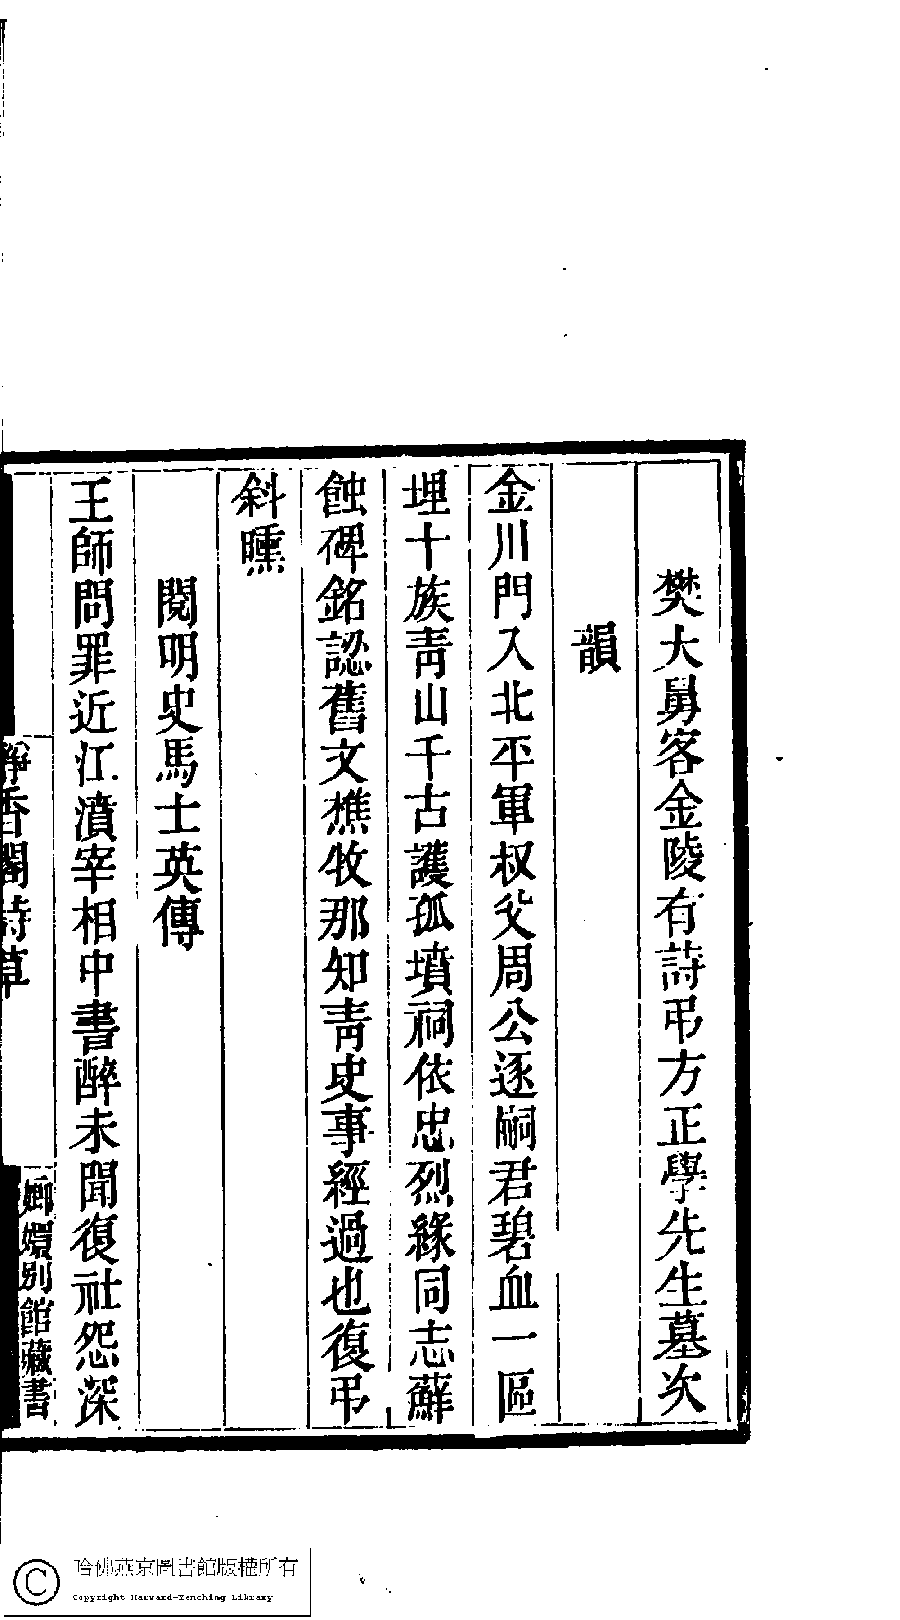 樊大舅客金陵有詩弔方正學先生墓次
韻
金川門入北平軍叔父周公逐嗣君碧血一區
埋十族靑山千古護孤墳祠依忠烈緣同志蘚
蝕碑銘認舊文樵牧那知靑史事經過也復弔
斜曛
閱明史馬士英傳
王師問罪近江濆宰相中書醉未聞復社怨深
靜香閣詩草
嫏嬛別館藏書
哈佛燕京圖書館版權所有
Copyright Harvard-Yenching Library